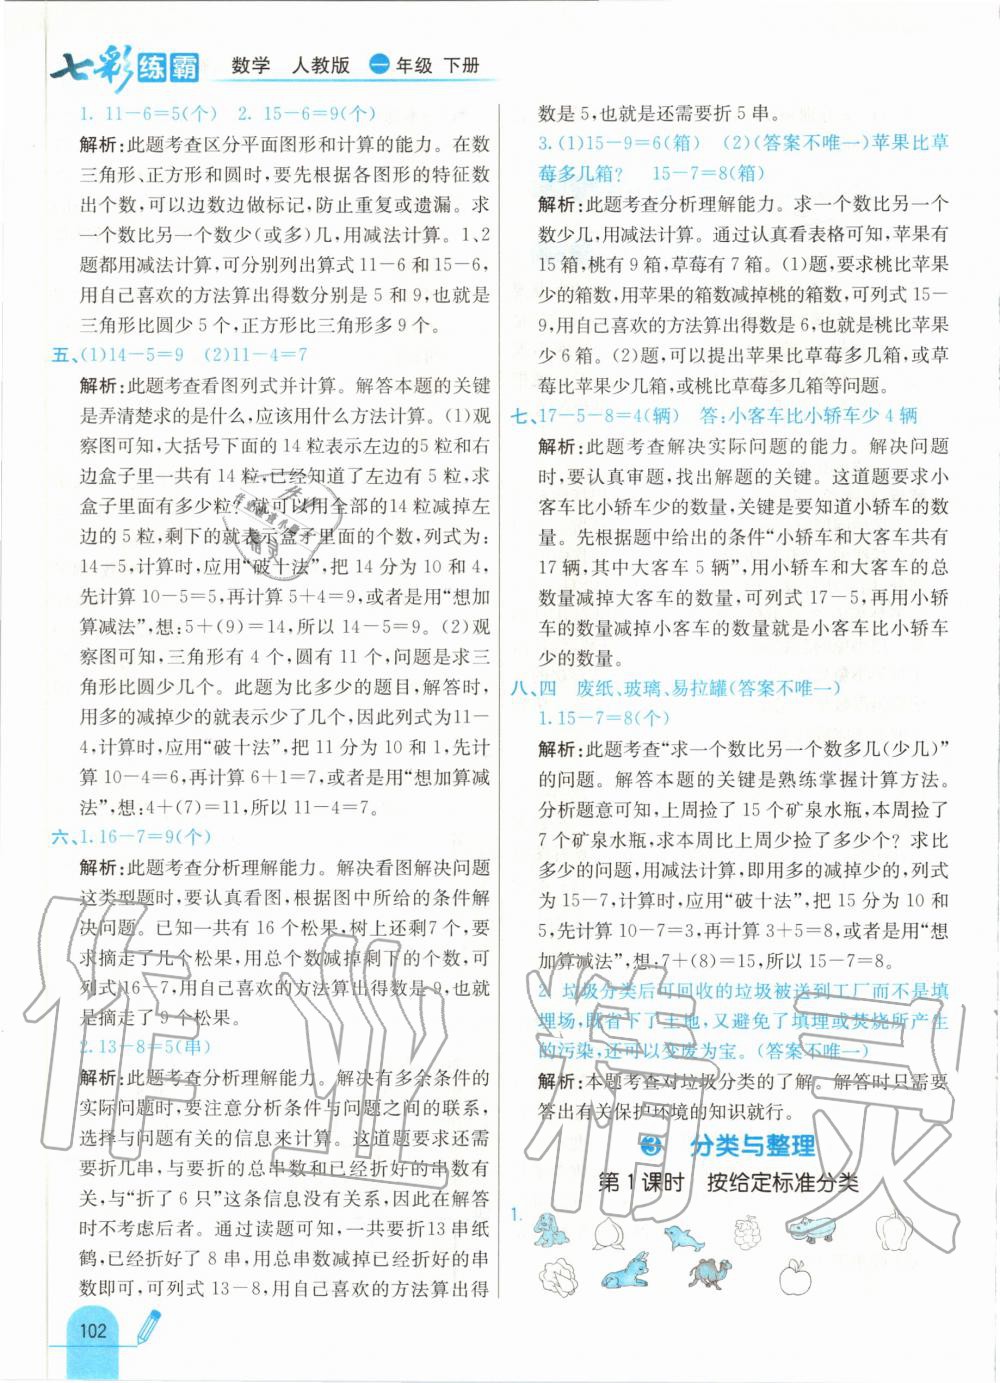 七彩练霸 数学 人教版 一年级 下册
1. 11－6＝5(个) 2. 15－6＝9(个)
解析:此题考查区分平面图形和计算的能力。在数
三角形、正方形和圆时,要先根据各图形的特征数
出个数,可以边数边做标记,防止重复或遗漏。求
一个数比另一个数少(或多)几,用减法计算。1、2
题都用减法计算,可分别列出算式 11－6 和 15－6,
用自己喜欢的方法算出得数分别是 5 和 9,也就是
三角形比圆少 5 个,正方形比三角形多 9 个。
五、(1)14－5＝9 (2)11－4＝7
解析:此题考查看图列式并计算。解答本题的关键
是弄清楚求的是什么,应该用什么方法计算。(1)观
察图可知,大括号下面的 14 粒表示左边的5 粒和右
边盒子里一共有 14 粒,已经知道了左边有 5 粒,求
盒子里面有多少粒? 就可以用全部的14 粒减掉左边
的 5 粒,剩下的就表示盒子里面的个数,列式为:
14－5,计算时,应用“破十法”,把 14 分为 10 和 4,
先计算 10－5＝5,再计算 5＋4＝9,或者是用“想加
算减法”,想:5＋(9)＝14,所以 14－5＝9。(2)观
察图可知,三角形有 4 个,圆有 11 个,问题是求三
角形比圆少几个。此题为比多少的题目,解答时,
用多的减掉少的就表示少了几个,因此列式为11－
4,计算时,应用“破十法”,把 11 分为 10 和 1,先计
算 10－4＝6,再计算 6＋1＝7,或者是用“想加算减
法”,想:4＋(7)＝11,所以 11－4＝7。
六、1.16－7＝9(个)
解析:此题考查分析理解能力。解决看图解决问题
这类型题时,要认真看图,根据图中所给的条件解
决问题。已知一共有 16 个松果,树上还剩7 个,要
求摘走了几个松果,用总个数减掉剩下的个数,可
列式 16－7,用自己喜欢的方法算出得数是 9,也就
是摘走了 9 个松果。
2.13－8＝5(串)
解析:此题考查分析理解能力。解决有多余条件的
实际问题时,要注意分析条件与问题之间的联系,
选择与问题有关的信息来计算。这道题要求还需
要折几串,与要折的总串数和已经折好的串数有
关,与“折了 6 只”这些信息没有关系,因此在解答
时不考虑后者。通过读题可知,一共要折13 串纸
鹤,已经折好了 8 串,用总串数减掉已经折好的串
数即可,可列式 13－8,用自己喜欢的方法算出得
数是 5,也就是还需要折 5 串。
3.(1)15－9＝6(箱) (2)(答案不唯一)苹果比草
莓多几箱? 15－7＝8(箱)
解析:此题考查分析理解能力。求一个数比另一个
数少几,用减法计算。通过认真看表格可知,苹果有
15 箱,桃有 9 箱,草莓有 7 箱。(1)题,要求桃比苹果
少的箱数,用苹果的箱数减掉桃的箱数,可列式 15－
9,用自己喜欢的方法算出得数是 6,也就是桃比苹果
少 6 箱。(2)题,可以提出苹果比草莓多几箱,或草
莓比苹果少几箱,或桃比草莓多几箱等问题。
七、17－5－8＝4(辆) 答:小客车比小轿车少 4 辆
解析:此题考查解决实际问题的能力。解决问题
时,要认真审题,找出解题的关键。这道题要求小
客车比小轿车少的数量,关键是要知道小轿车的数
量。先根据题中给出的条件“小轿车和大客车共有
17 辆,其中大客车 5 辆”,用小轿车和大客车的总
数量减掉大客车的数量,可列式 17－5,再用小轿
车的数量减掉小客车的数量就是小客车比小轿车
少的数量。
八、四 废纸、玻璃、易拉罐(答案不唯一)
1.15－7＝8(个)
解析:此题考查“求一个数比另一个数多几(少几)”
的问题。解答本题的关键是熟练掌握计算方法。
分析题意可知,上周捡了 15 个矿泉水瓶,本周捡了
7 个矿泉水瓶,求本周比上周少捡了多少个? 求比
多少的问题,用减法计算,即用多的减掉少的,列式
为 15－7,计算时,应用“破十法”,把 15 分为 10 和
5,先计算 10－7＝3,再计算 3＋5＝8,或者是用“想
加算减法”,想:7＋(8)＝15,所以 15－7＝8。
2. 垃圾分类后可回收的垃圾被送到工厂而不是填
埋场,既省下了土地,又避免了填埋或焚烧所产生
的污染,还可以变废为宝。(答案不唯一)
解析:本题考查对垃圾分类的了解。解答时只需要
答出有关保护环境的知识就行。
3 分类与整理
第 1 课时 按给定标准分类
1.
102
作业精灵